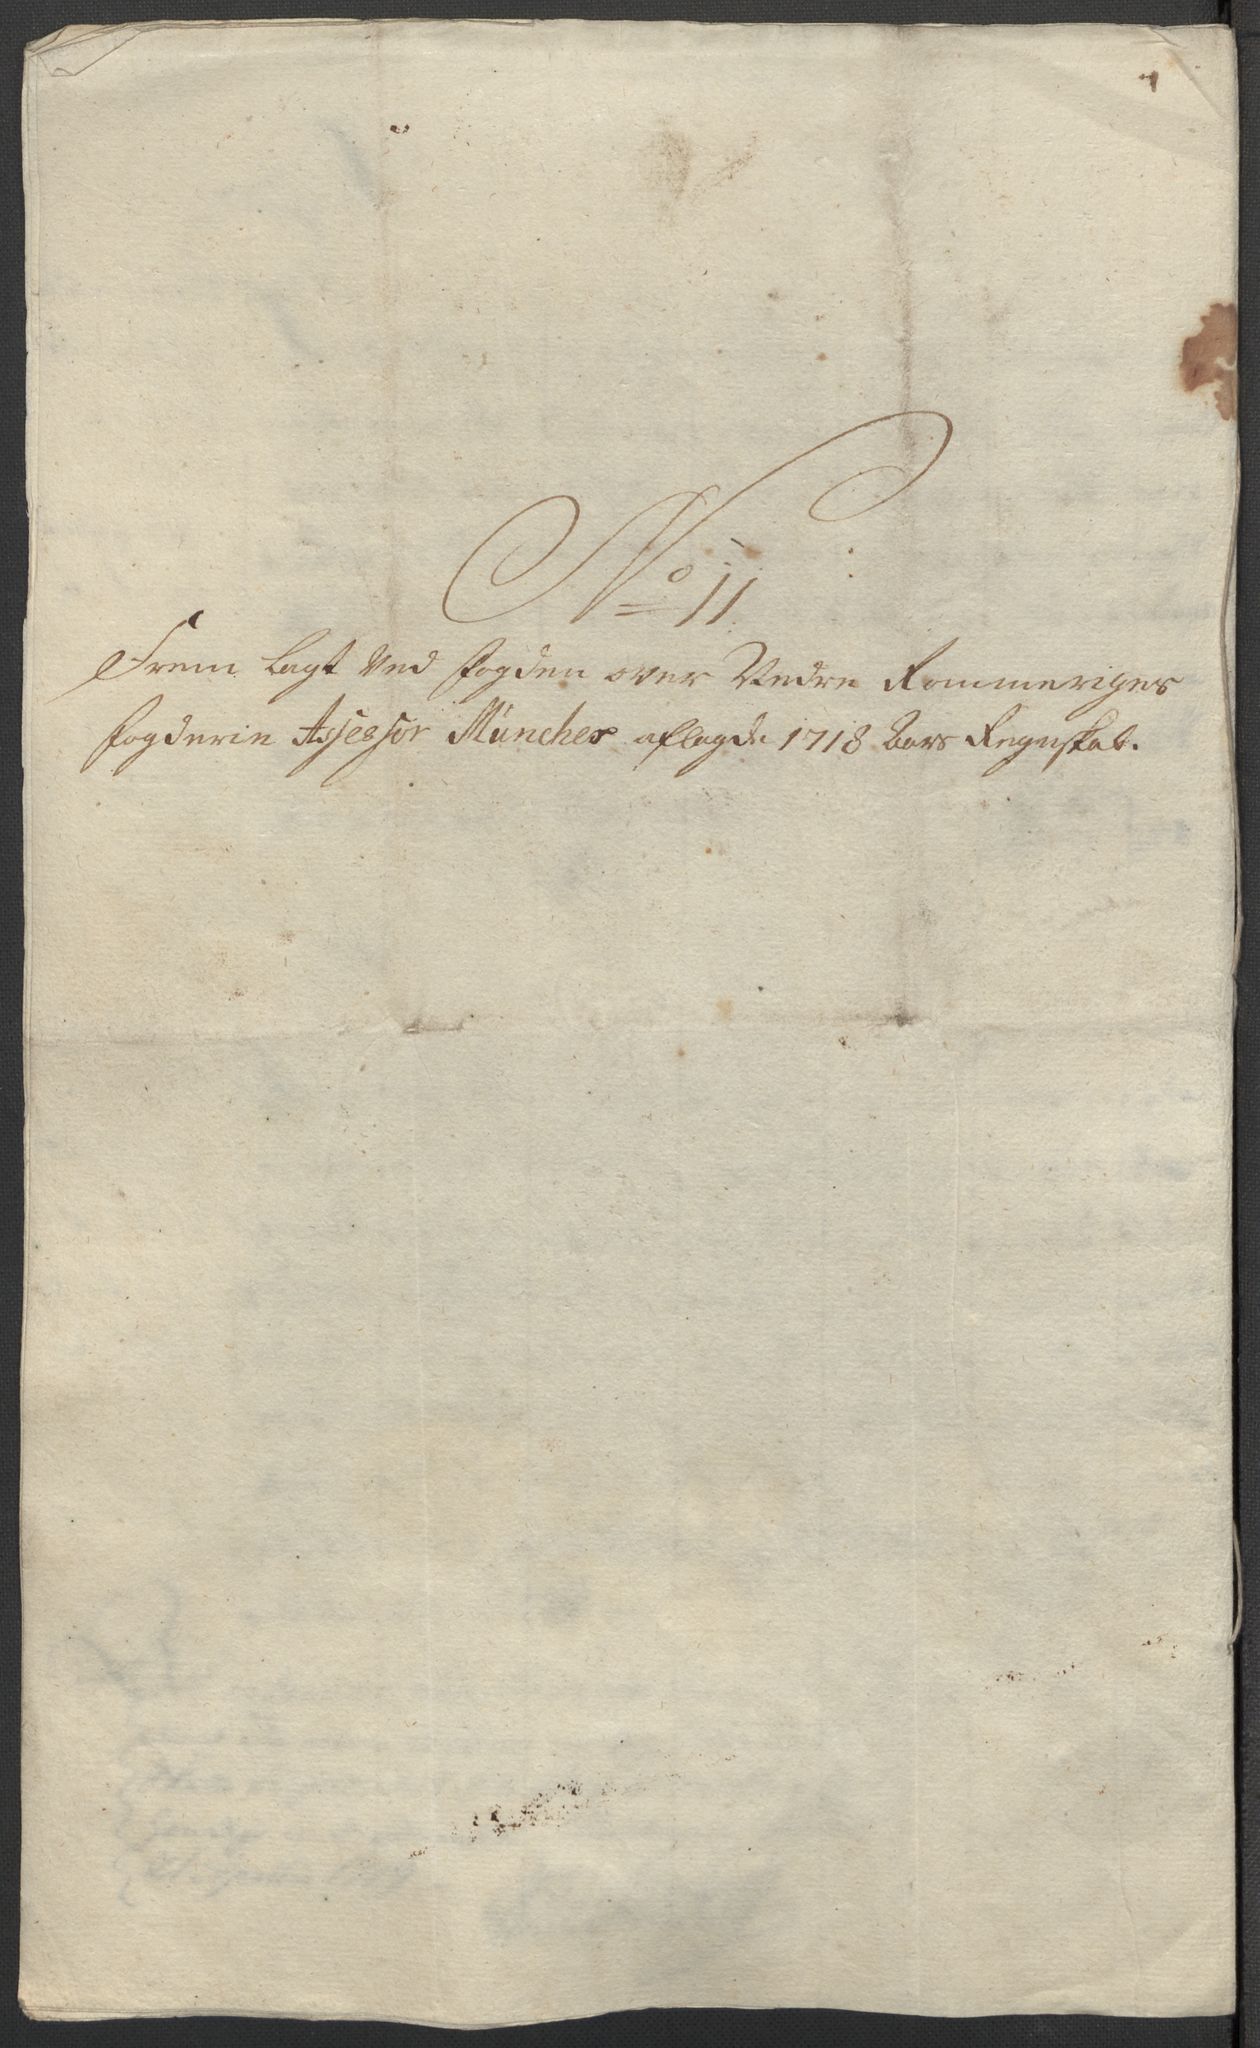 No 11.
Frem lagt Ved fogden over Nedre Rommeriges
fogderie Assessor Münches aflagde 1718 Aars Regnskab.